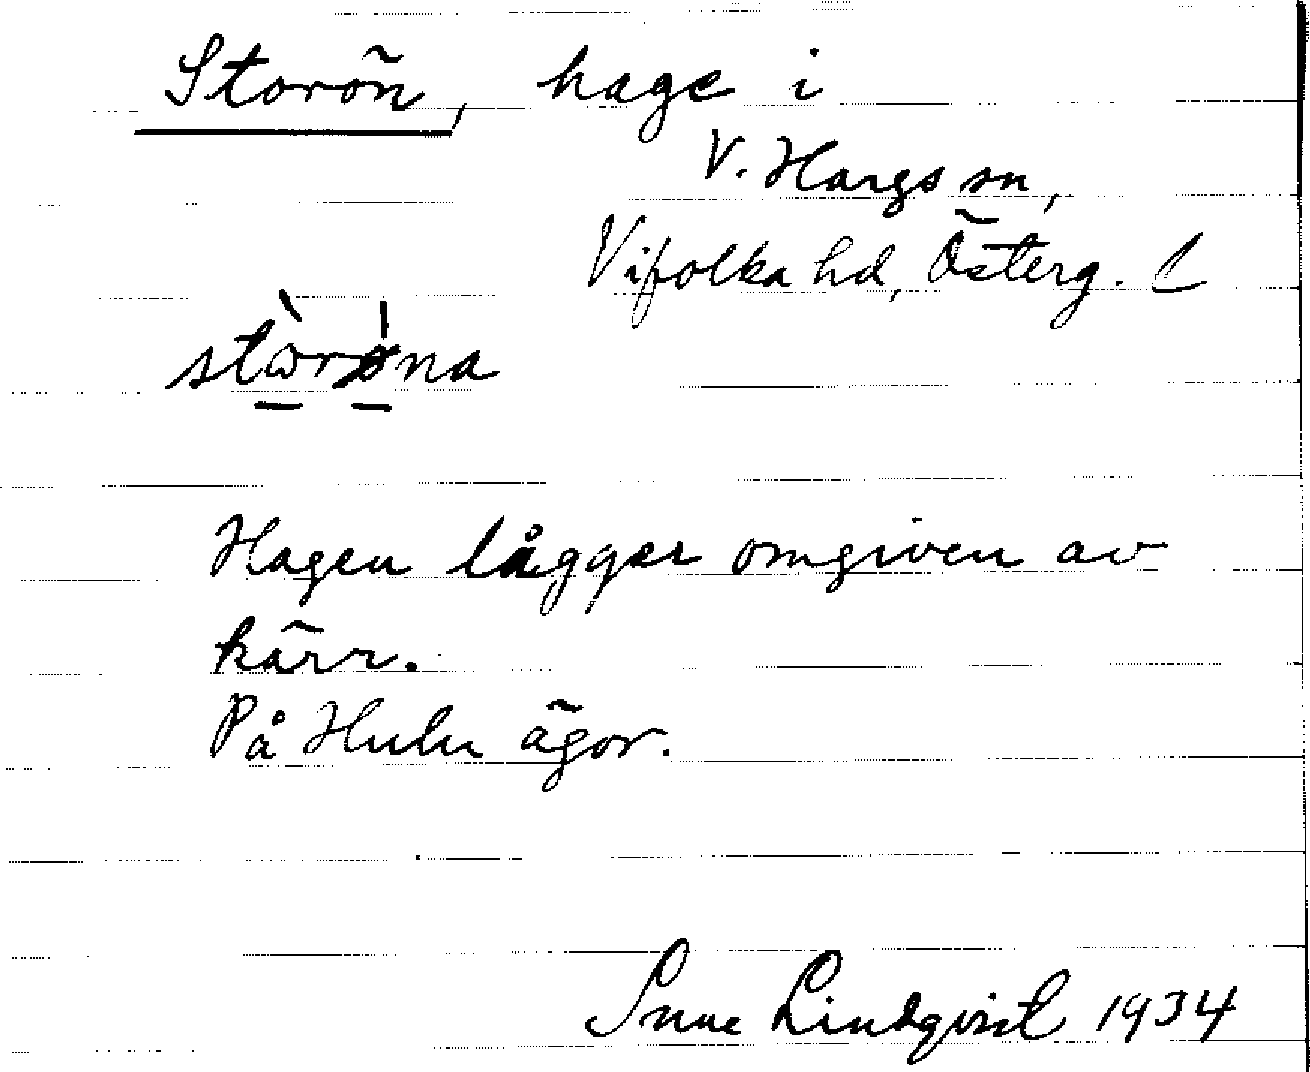 Storön, hage i
V. Hargs sn,
Vifolka hd, Österg. L
stòrǿna
Hagen lågger omgiven av
kärr.
På Hulu ägor.
Sune Lindqvist 1934